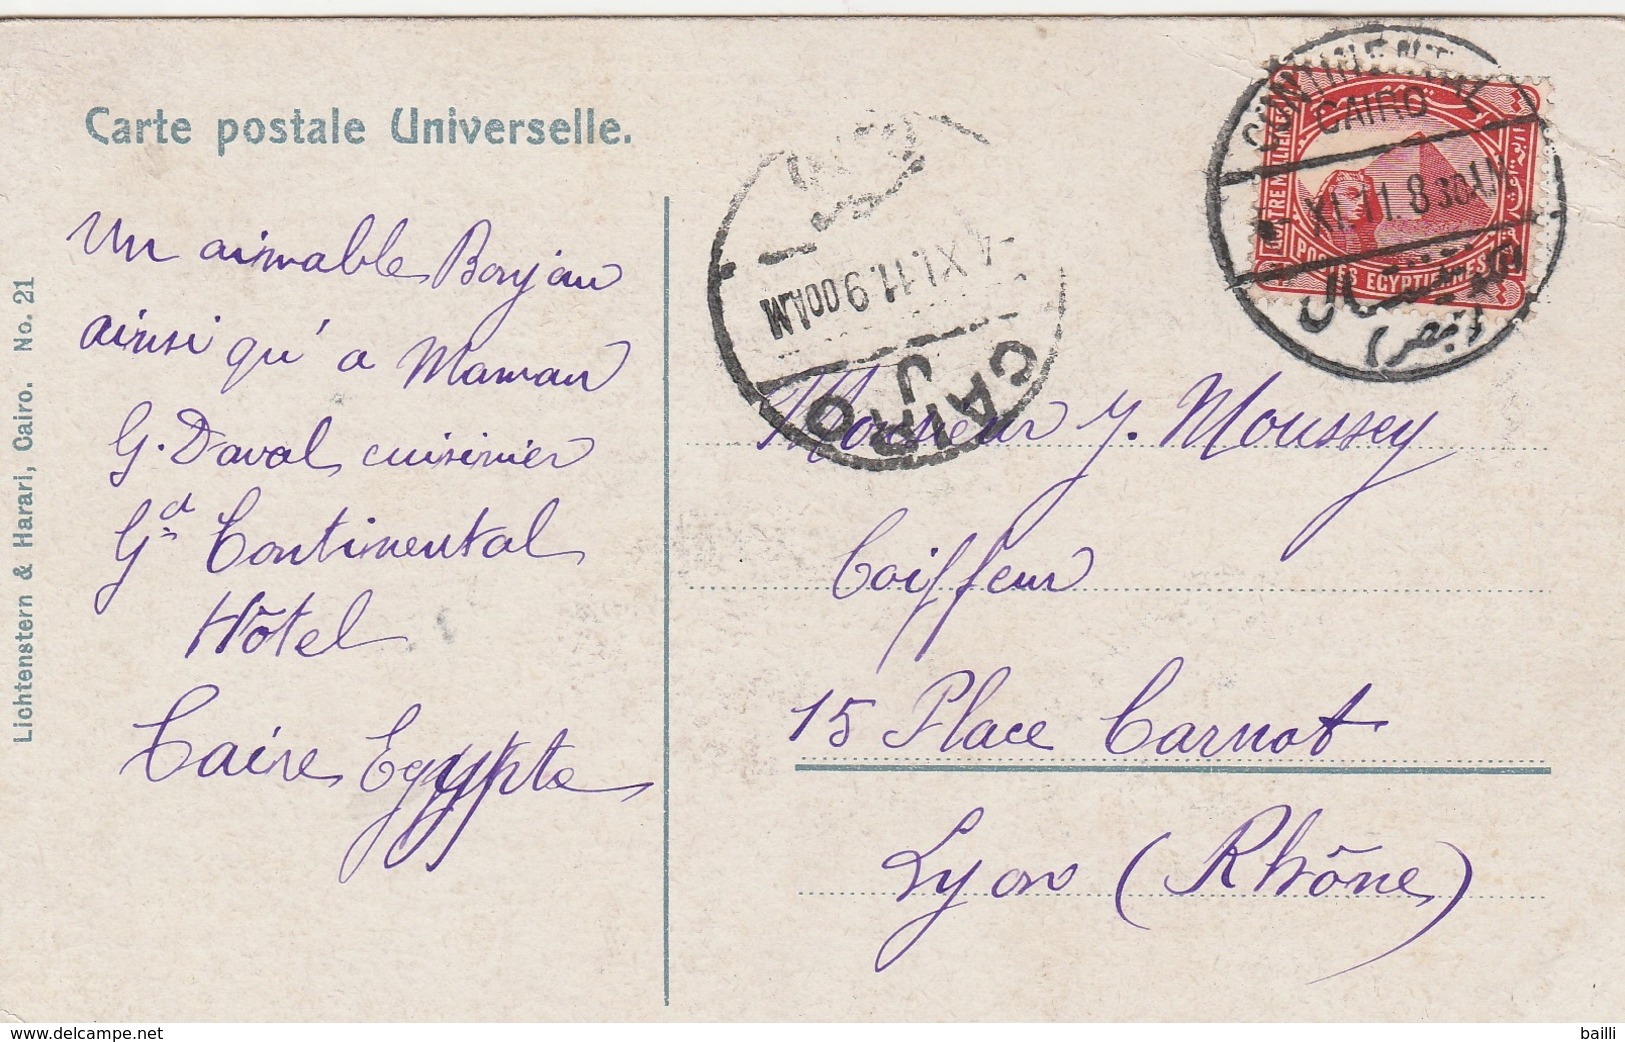 Carte postale Universelle.
Un aimable Bonjour
ainsi qu'a Maman
G. Daval cuisinier
Gd Continental
Hôtel
Caire Egypte
Lichtenstern & Harari, Cairo. No. 21
4 XI.11. 9 00 AM
CAIRO
CONTINENTAL
CAIRO
XI. 11. 8 30 AM
كونتيننتال
(بمصر)
QUATRE MILLIEMES
POSTES EGYPTIENNES
Monsieur J. Moussey
Coiffeur
15 Place Carnot
Lyon (Rhône)
www.delcampe.net
bailli